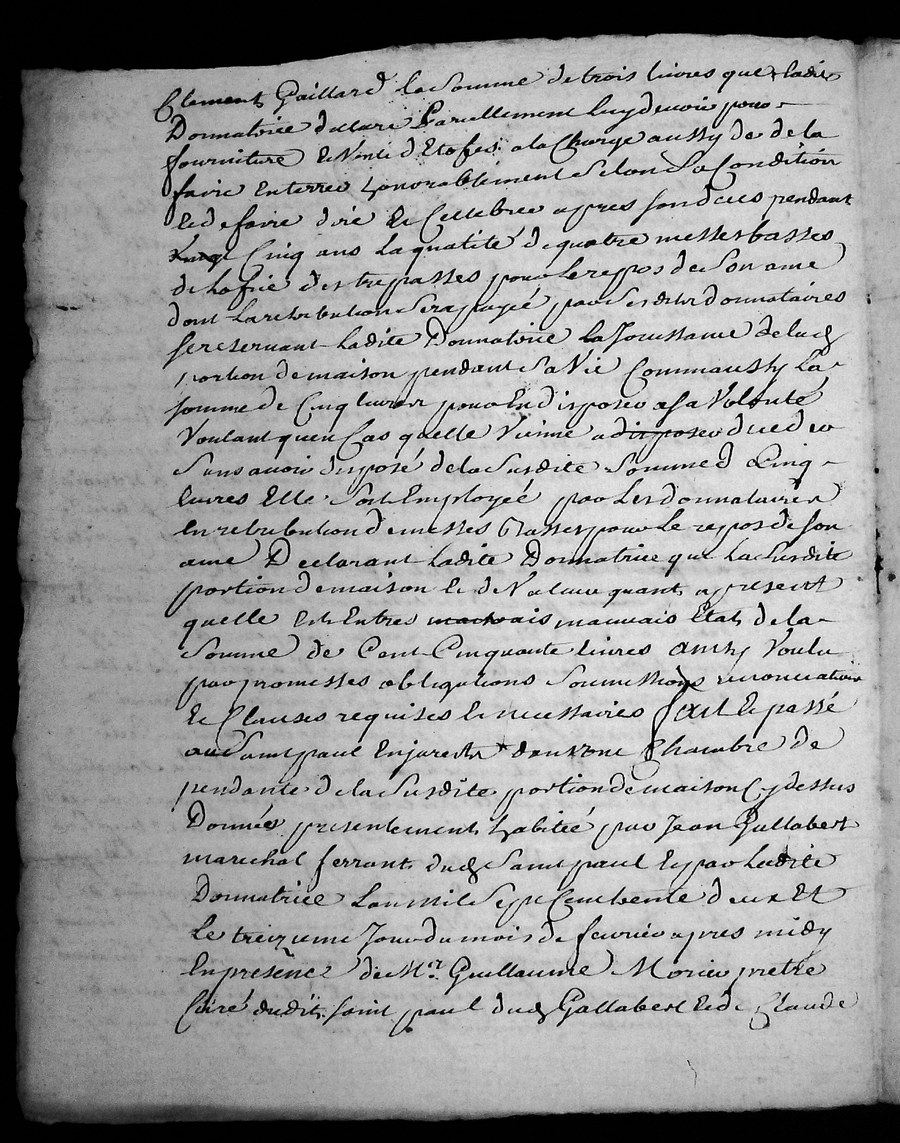 Clement Gaillard la Somme de trois livres que ladite
Donnatrice declare pareillement luy devoir pour
fourniture et Vente d'Etofes a la Charge aussy de de la
faire enterrer honnorablement Selon Sa Condition
et de faire dire et Cellebrer apres son deces pendant
Cinq ans la quatité de quatre messes basses
de l'ofice des trepasses pour le repos de Son ame
dont la retribution Sera payé par Sesdits donnataires
se reservant ladite Donnatrice la Jouissance de lad
portion de maison pendant Sa Vie Comm aussy La
somme de Cinq livres pour en disposer a sa Volonté
Voulant quen Cas quelle Vienne a disposer deceder
Sans avoir disposé de la Susdite Somme d Cinq
livres Elle Soit Employée par les donnataires
en retribution de messes basses pour le repos de son
ame Declarant ladite Donnatrice que la Susdite
portion de maison Et de Valeur quant a present
quelle est en tres mauvais mauvais Etat de la
Somme de Cent Cinquante livres ainsy Voulu
par promesses obligations Soumissions renonciations
et Clauses requises et necessaires fait et passé
aud Saint paul en jarest dans une Chambre de
pendante de la Susdite portion de maison Cy dessus
Donnée presentement habitée par Jean Gallabert
marechal ferrant dud Saint paul et par ladite
Donnatrice L'an mil Sept Cent trente deux Et
le treizieme Jour du mois de fevrier apres midy
en presence de Mr. Guillaume Morier pretre
Curé dudit Saint paul dud Gallabert et de Claude